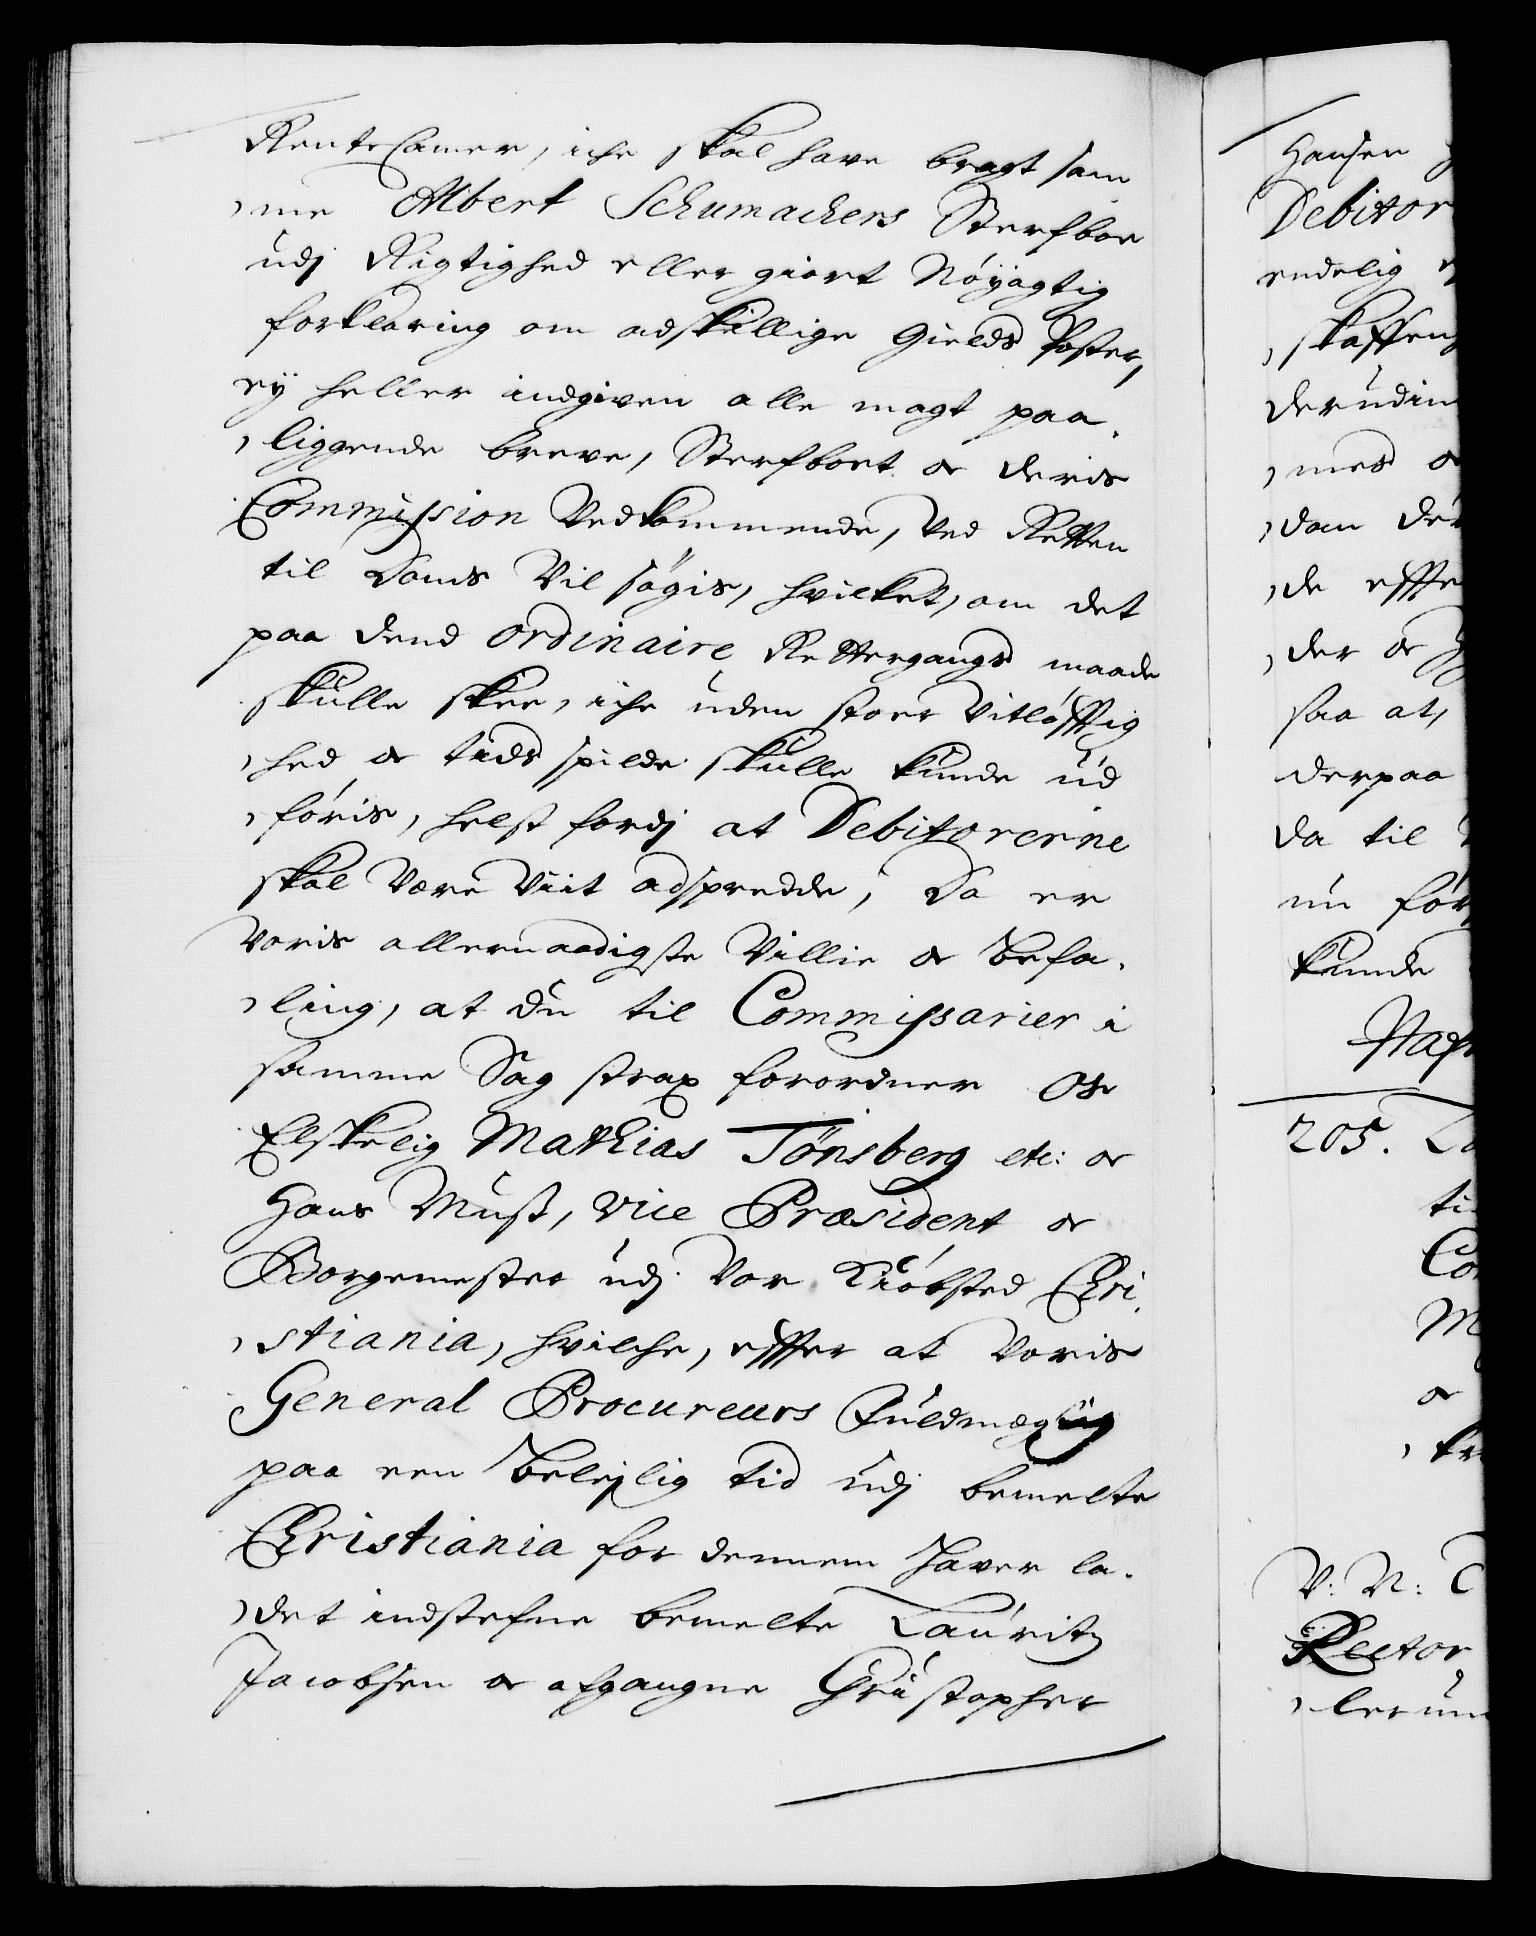 RenteCamer, iche skal have bragt sam
,,me Albert Schumachers Sterfboe
udj Rigtighed eller giort Nöyagtig
forklaring om adskillige Gields Poster,
ey heller indgiven alle magt paa,,
,,liggende breve, Sterfboet og deris
Commission Vedkommende, Ved Retten
til Doms Vil søgis, hvilket, om det
paa dend ordinaire Rettergangs maade
skulle skee, iche uden stoer Vitløfftig
,,hed og tids spilde skulle kunde ud
,,føris, helst fordj at Debitorerne
skal Være Viit adspredde; Da er
Voris allernaadigste Villie og Befa,,
,,ling, at du til Commissarier i
samme Sag strax forordner Os
Elskelig Mathias Tönsberg etc: og
Hans Must, Vice Præsident og
Borgemester udj Vor Kiøbsted Chri,,
,,stiania, hvilche, effter at Voris
General Procureurs Fuldmægtig
paa een Belejlig tid udj bemelte
Christiania for dennem haver la,,
,,det indstefne bemelte Lauritz
Jacobsen og afgangne Christopher
Hansen
Debitor
endelig
,,skaffen
derudin
,,med
,,dan der
,,de effte
,,der og
saa at,
derpaa
da til
nu før
kunde
205.
ti
Co
M
og
V: N:
Rector
,,lerun